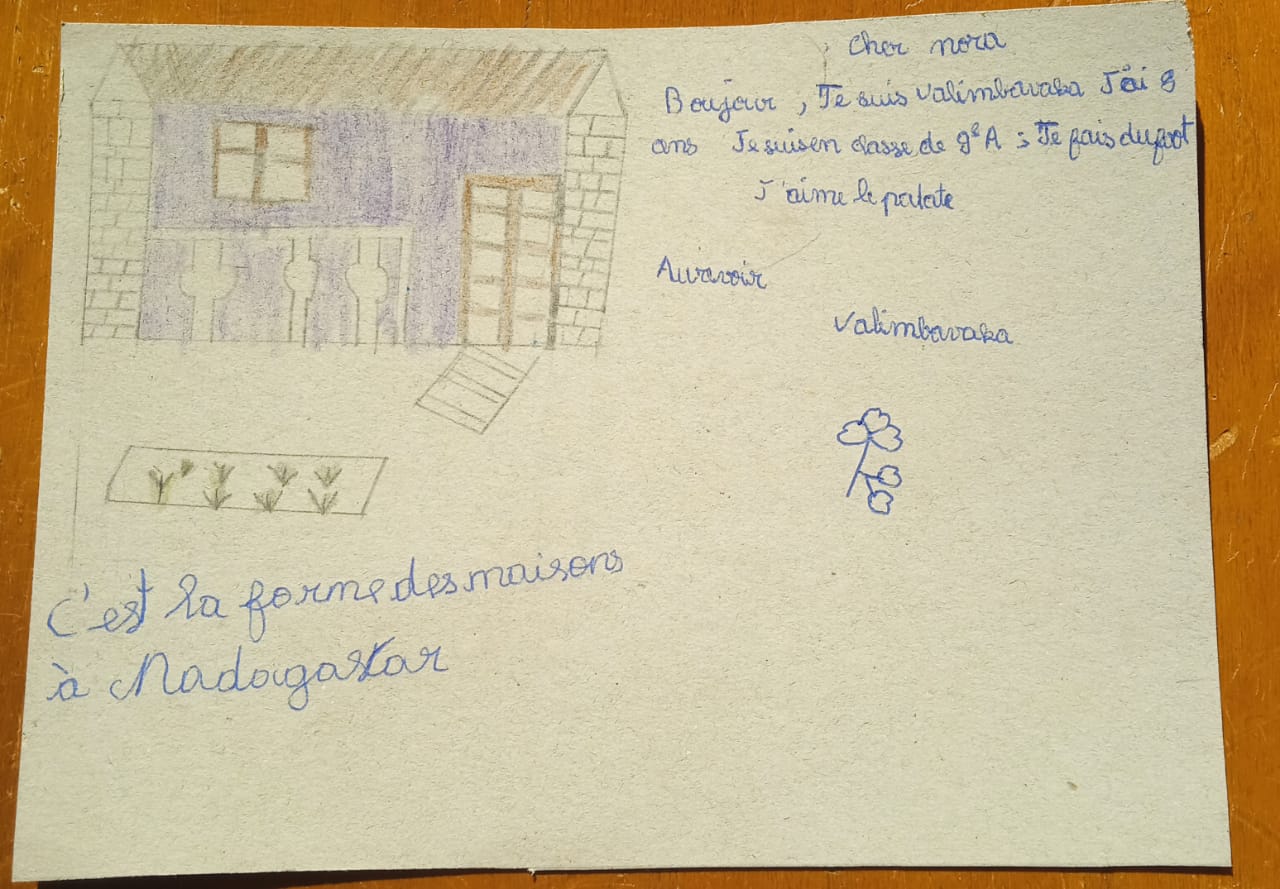 Cher nora
Boujour, Je suis Valimbavaka J'ai 8
ans Je suis en classe de 9è A ; Je fais du foot
J'aime le patate
Aurevoir
Valimbavaka
C'est la forme des maisons
à Madagaskar